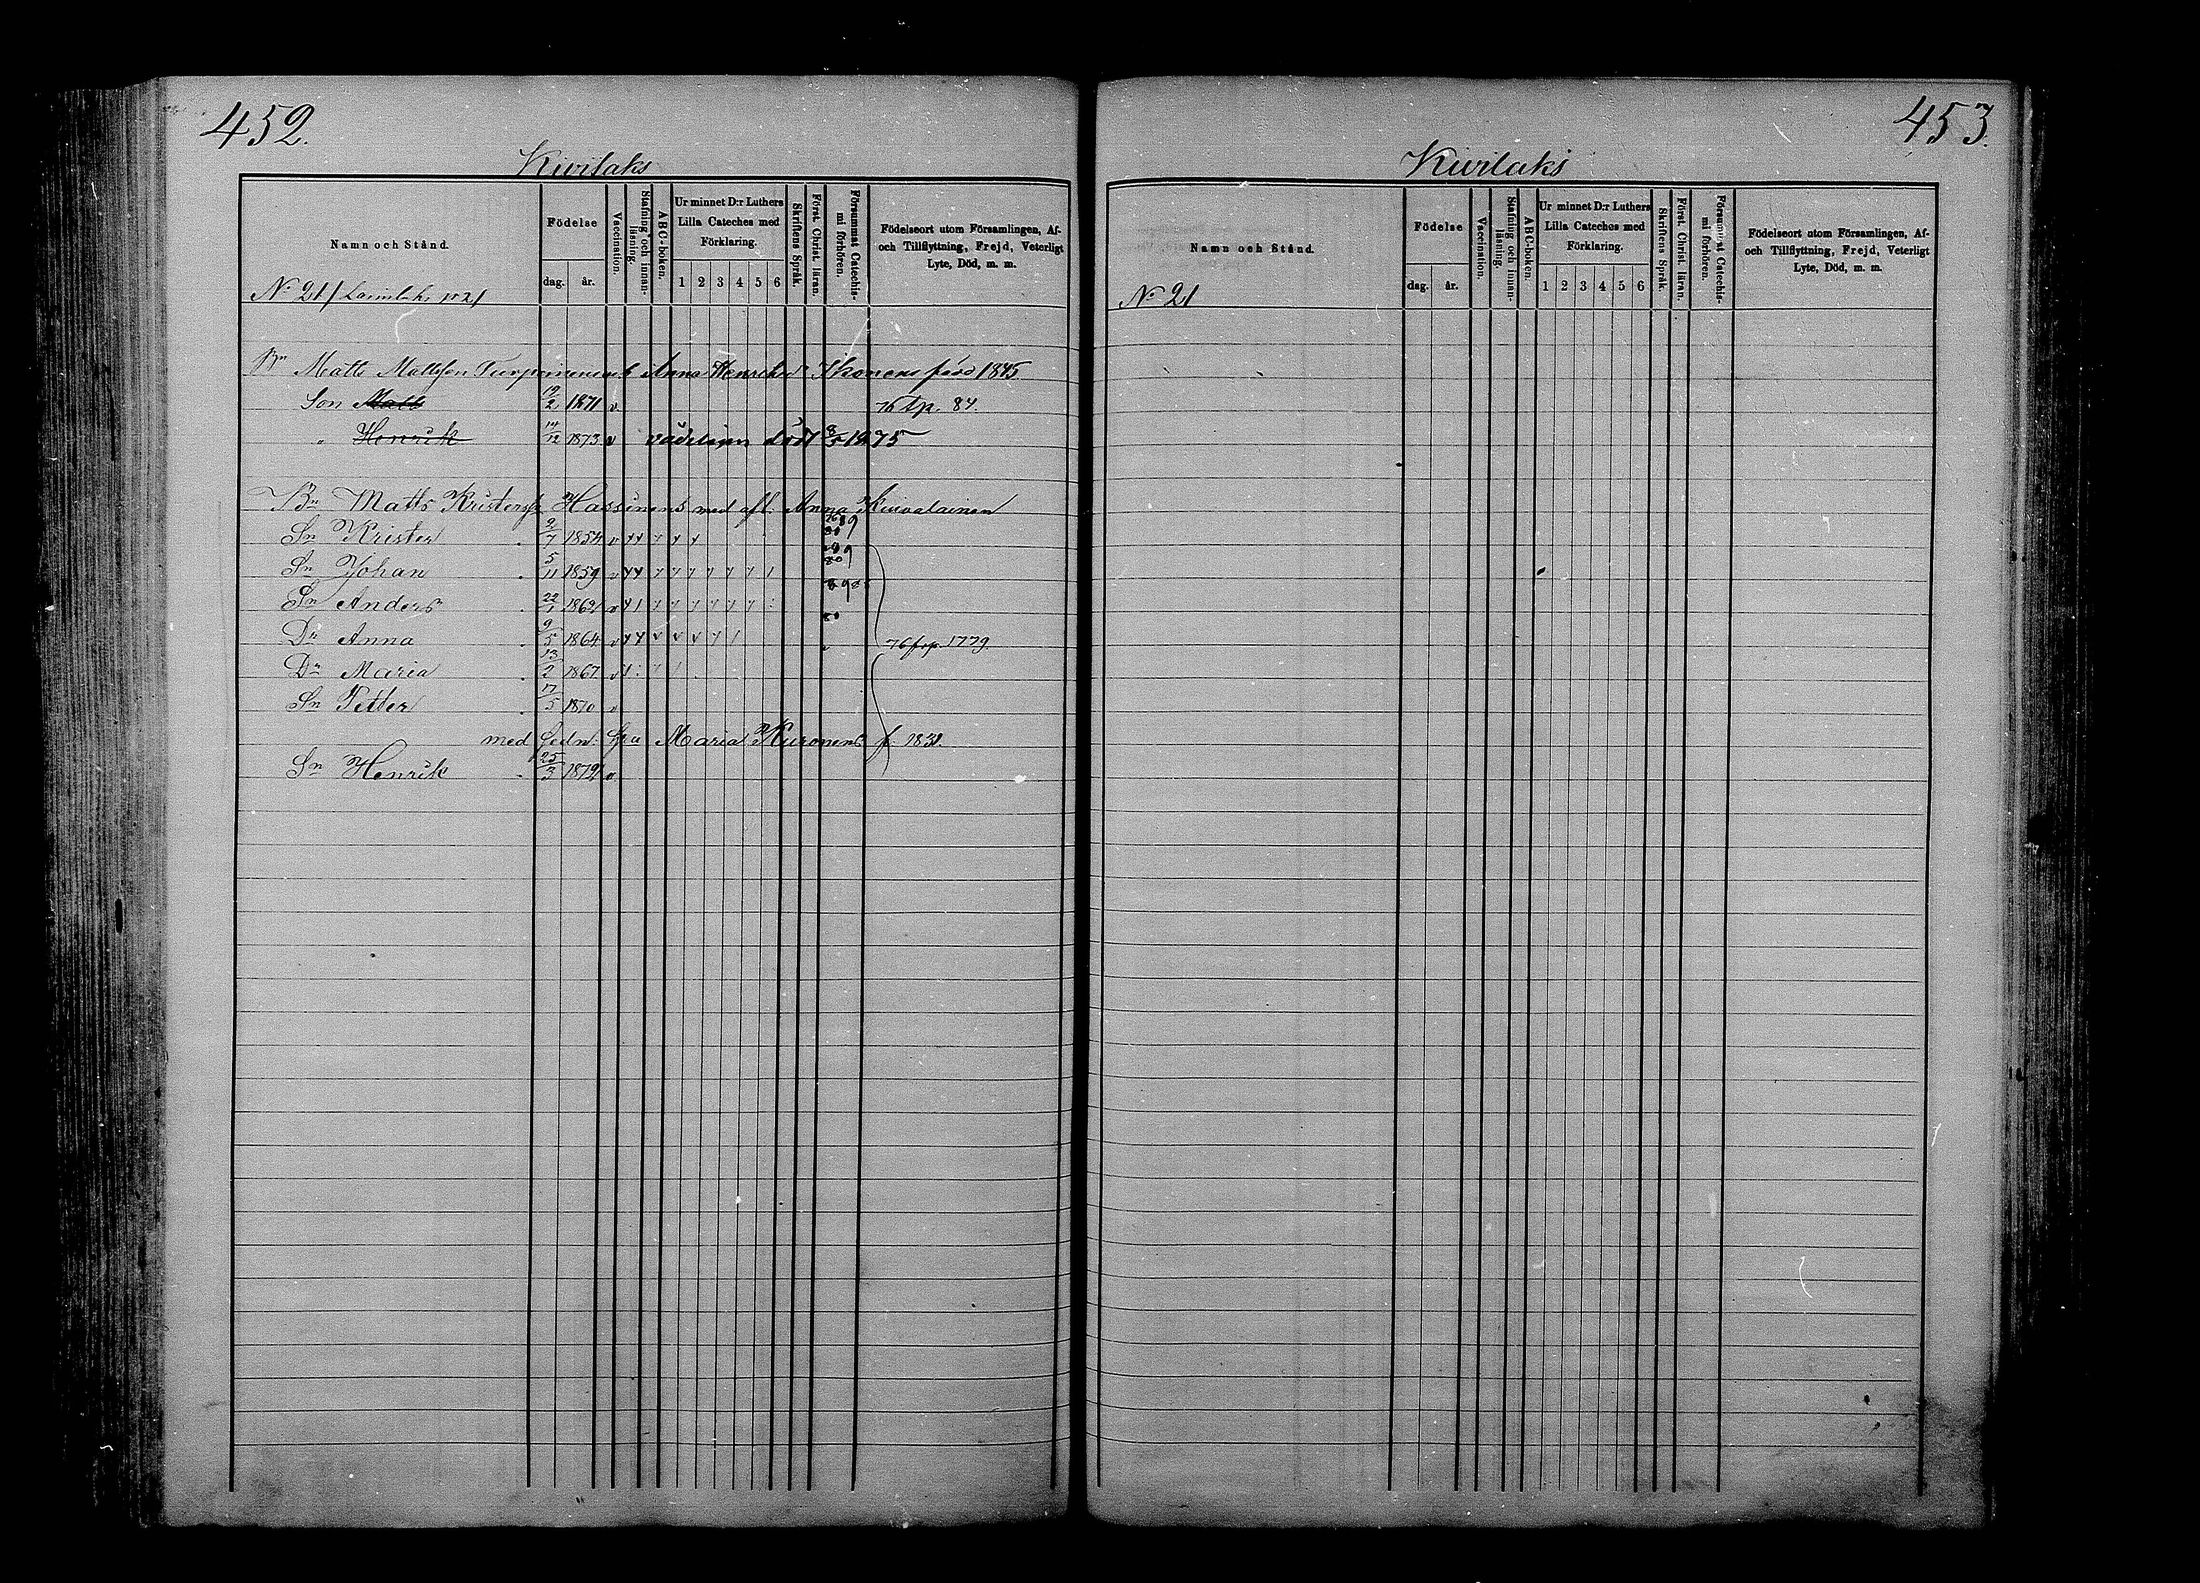 452.
Kivilaks
Namn och Stånd.
Födelse
dag. år.
Vaccination.
Stafning och innanläsning.
ABC-boken.
Ur minnet D:r Luthers Lilla Cateches med Förklaring.
1 2 3 4 5 6
Skriftens Språk.
Först. Christ. läran.
Försummat Catechismi förhören.
Födelseort utom Församlingen, Af- och Tillflyttning, Frejd, Veterligt Lyte, Död, m. m.
No 21
Bn Matts Mattsson Anna Ikonens född 1845
Son Matts 2 1871 v 84.
" Henrik 14/12 1873 v död 1875
Bn Matts Hassinens med afl. Anna Kuivalainen
Sn Krister 2/7 1854 v
Sn Johan 5/11 1859 v
Sn Anders 22/1 1862 v
Dr Anna 9/5 1864 v 1779.
Dr Maria 13/2 1867 v
Sn Petter 17/5 1870 v
med Maria Kuronens f. 1831.
Sn Henrik 25/3 1872 v
453.
Kivilaks
Namn och Stånd.
Födelse
dag. år.
Vaccination.
Stafning och innanläsning.
ABC-boken.
Ur minnet D:r Luthers Lilla Cateches med Förklaring.
1 2 3 4 5 6
Skriftens Språk.
Först. Christ. läran.
Försummat Catechismi förhören.
Födelseort utom Församlingen, Af- och Tillflyttning, Frejd, Veterligt Lyte, Död, m. m.
No 21